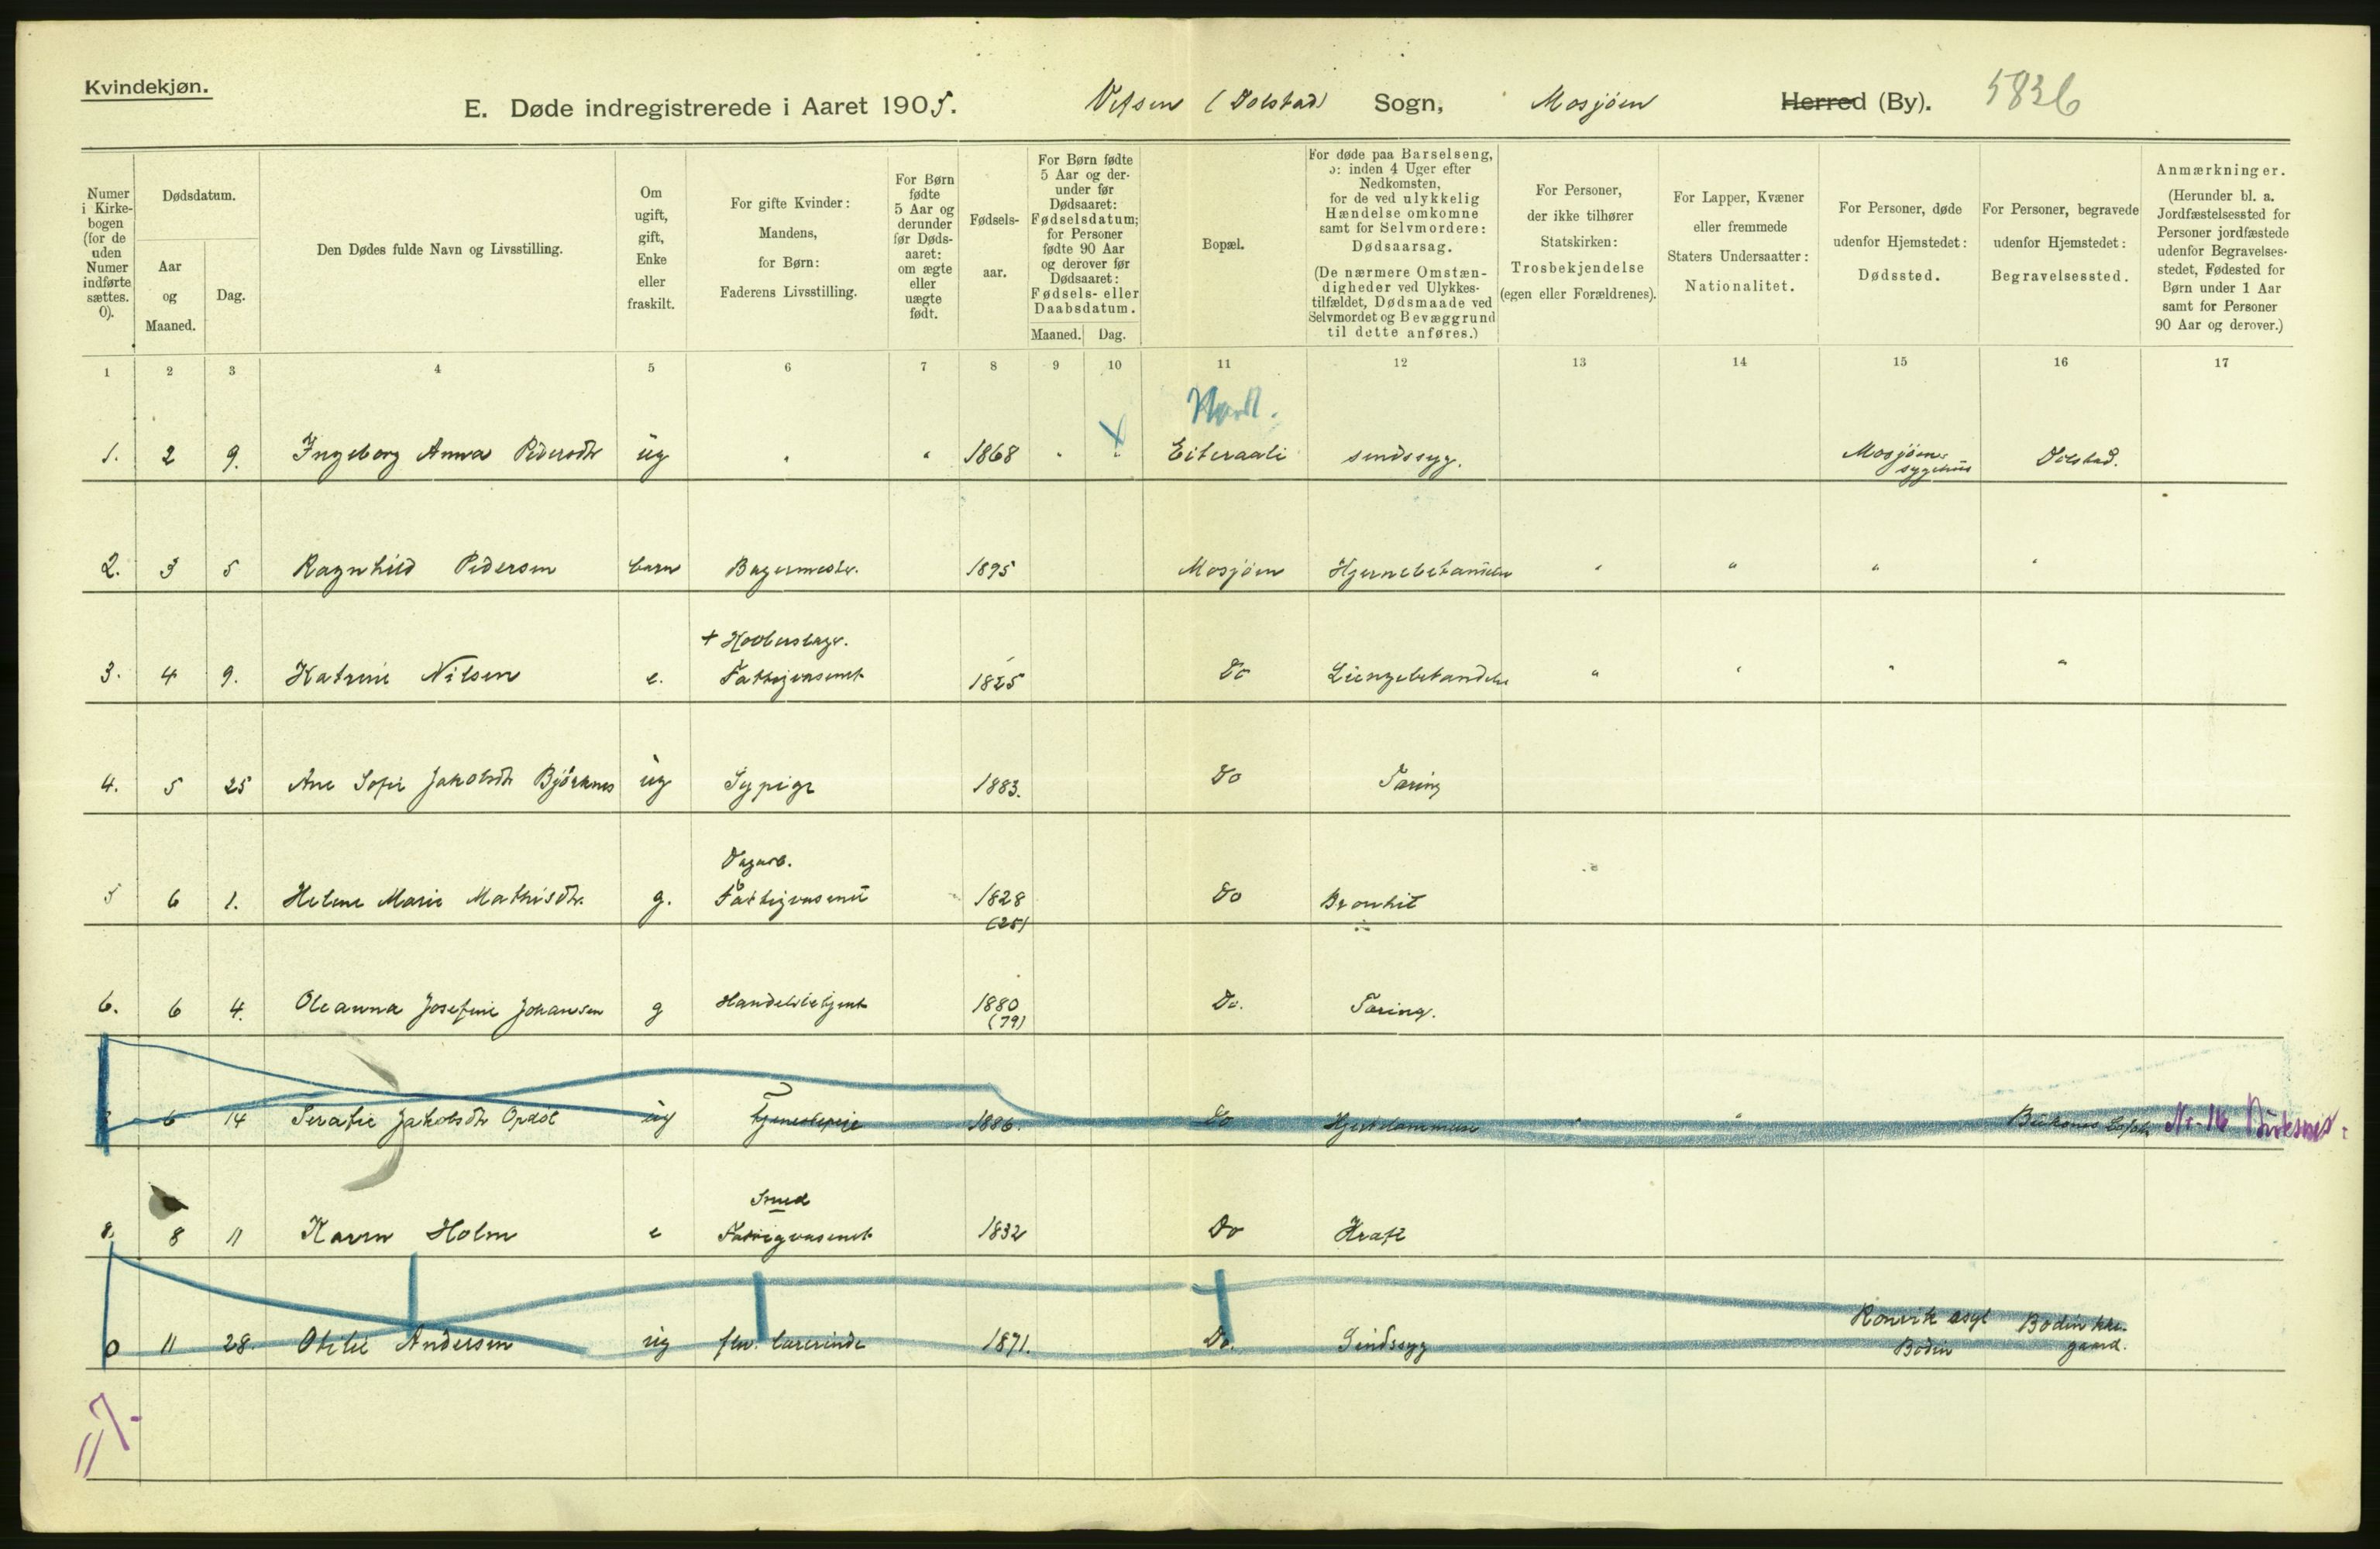 Kvindekjøn.
E. Døde indregistrerede i Aaret 1905. Vefsen (Dolstad) Sogn, Mosjøen Herred (By). 5836
Numer i Kirke-bogen (for de uden Numer indførte sættes. 0).
Dødsdatum.
Aar og Maaned.
Dag.
Den Dødes fulde Navn og Livsstilling.
Om ugift, gift, Enke eller fraskilt.
For gifte Kvinder: Mandens, for Børn: Faderens Livsstilling.
For Børn fødte 5 Aar og derunder før Døds-aaret: om ægte eller uægte født.
Fødsels-aar.
For Børn fødte 5 Aar og der-under før Dødsaaret: Fødselsdatum; for Personer fødte 90 Aar og derover før Dødsaaret: Fødsels- eller Daabsdatum.
Maaned. Dag.
Bopæl.
For døde paa Barselseng, ɔ: inden 4 Uger efter Nedkomsten, for de ved ulykkelig Hændelse omkomne samt for Selvmordere: Dødsaarsag. (De nærmere Omstæn-digheder ved Ulykkes-tilfældet, Dødsmaade ved Selvmordet og Bevæggrund til dette anføres.)
For Personer, der ikke tilhører Statskirken: Trosbekjendelse (egen eller Forældrenes).
For Lapper, Kvæner eller fremmede Staters Undersaatter: Nationalitet.
For Personer, døde udenfor Hjemstedet: Dødssted.
For Personer, begravede udenfor Hjemstedet: Begravelsessted.
Anmærkninger. (Herunder bl. a. Jordfæstelsessted for Personer jordfæstede udenfor Begravelses-stedet, Fødested for Børn under 1 Aar samt for Personer 90 Aar og derover.)
1 2 3 4 5 6 7 8 9 10 11 12 13 14 15 16 17
1. 2 9. Ingeborg Anna Pedersdtr ug " " 1868 " " Eiteraali sindssyg. Mosjøens sygehus Dolstad.
2. 3 5 Ragnhild Pedersen barn Bagermester. 1895 Mosjøen Hjernebetændelse " " " "
+ Hovbenslagr.
3. 4 9. Katrine Nilsen e. Fattigvæsenet 1825 Do Lungebetændelse " " " "
4. 5 25 Ane Sofie Jakobsdtr Bjørknes ug Sypige 1883. Do Tæring
Dagarb.
5 6 1. Helene Marie Mathisdtr. g. Fattigvæsenet 1828 Do Bronkit
(25)
6. 6 4. Oleanna Josefine Johansen g Handelsbetjent 1880 Do. Tæring.
(79)
6 14 Serafie Jakobsdtr Opdøl ug Tjenestepige 1886. Do Hjertelammelse " " Nr 16
Smed
8. 8 11 Karen Holm e Fattigvæsenet 1832 Do Kræft
0 11 28. Otilie Andersen ug fhv. lærerinde 1871. Do. Sindssyg Rønvik asyl Bodin Bodin kirkegaard.